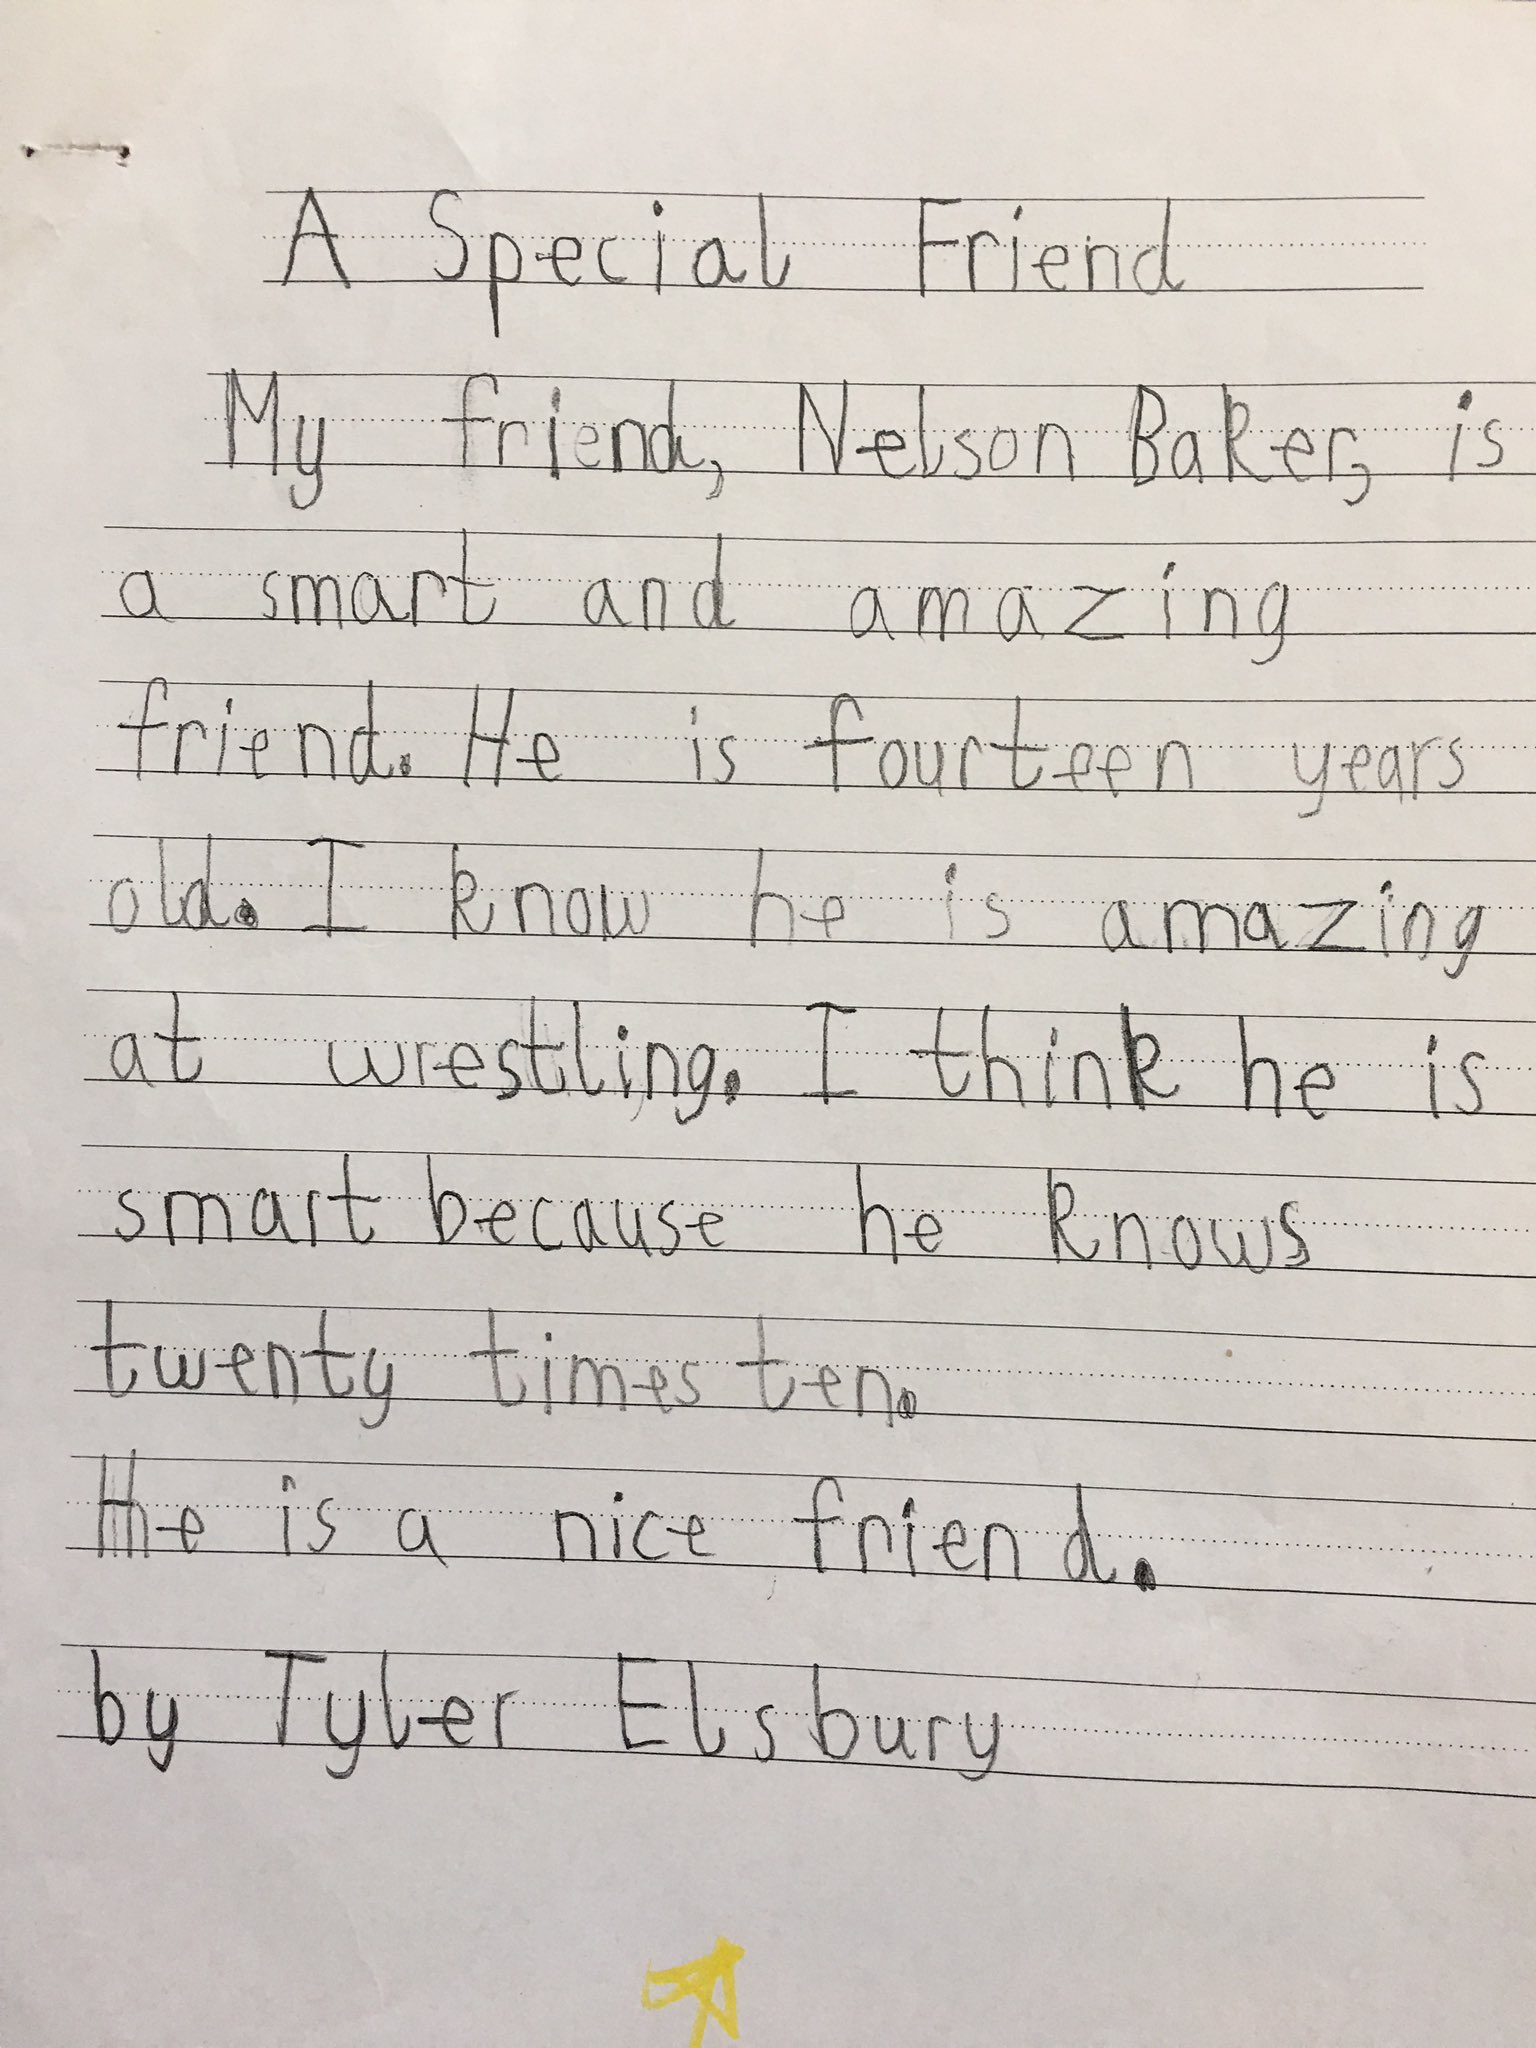 A Special Friend
My friend, Nelson Baker, is
a smart and amazing
friend. He is fourteen years
old. I know he is amazing
at wrestling. I think he is
smart because he knows
twenty times ten.
He is a nice friend.
by Tyler Elsbury